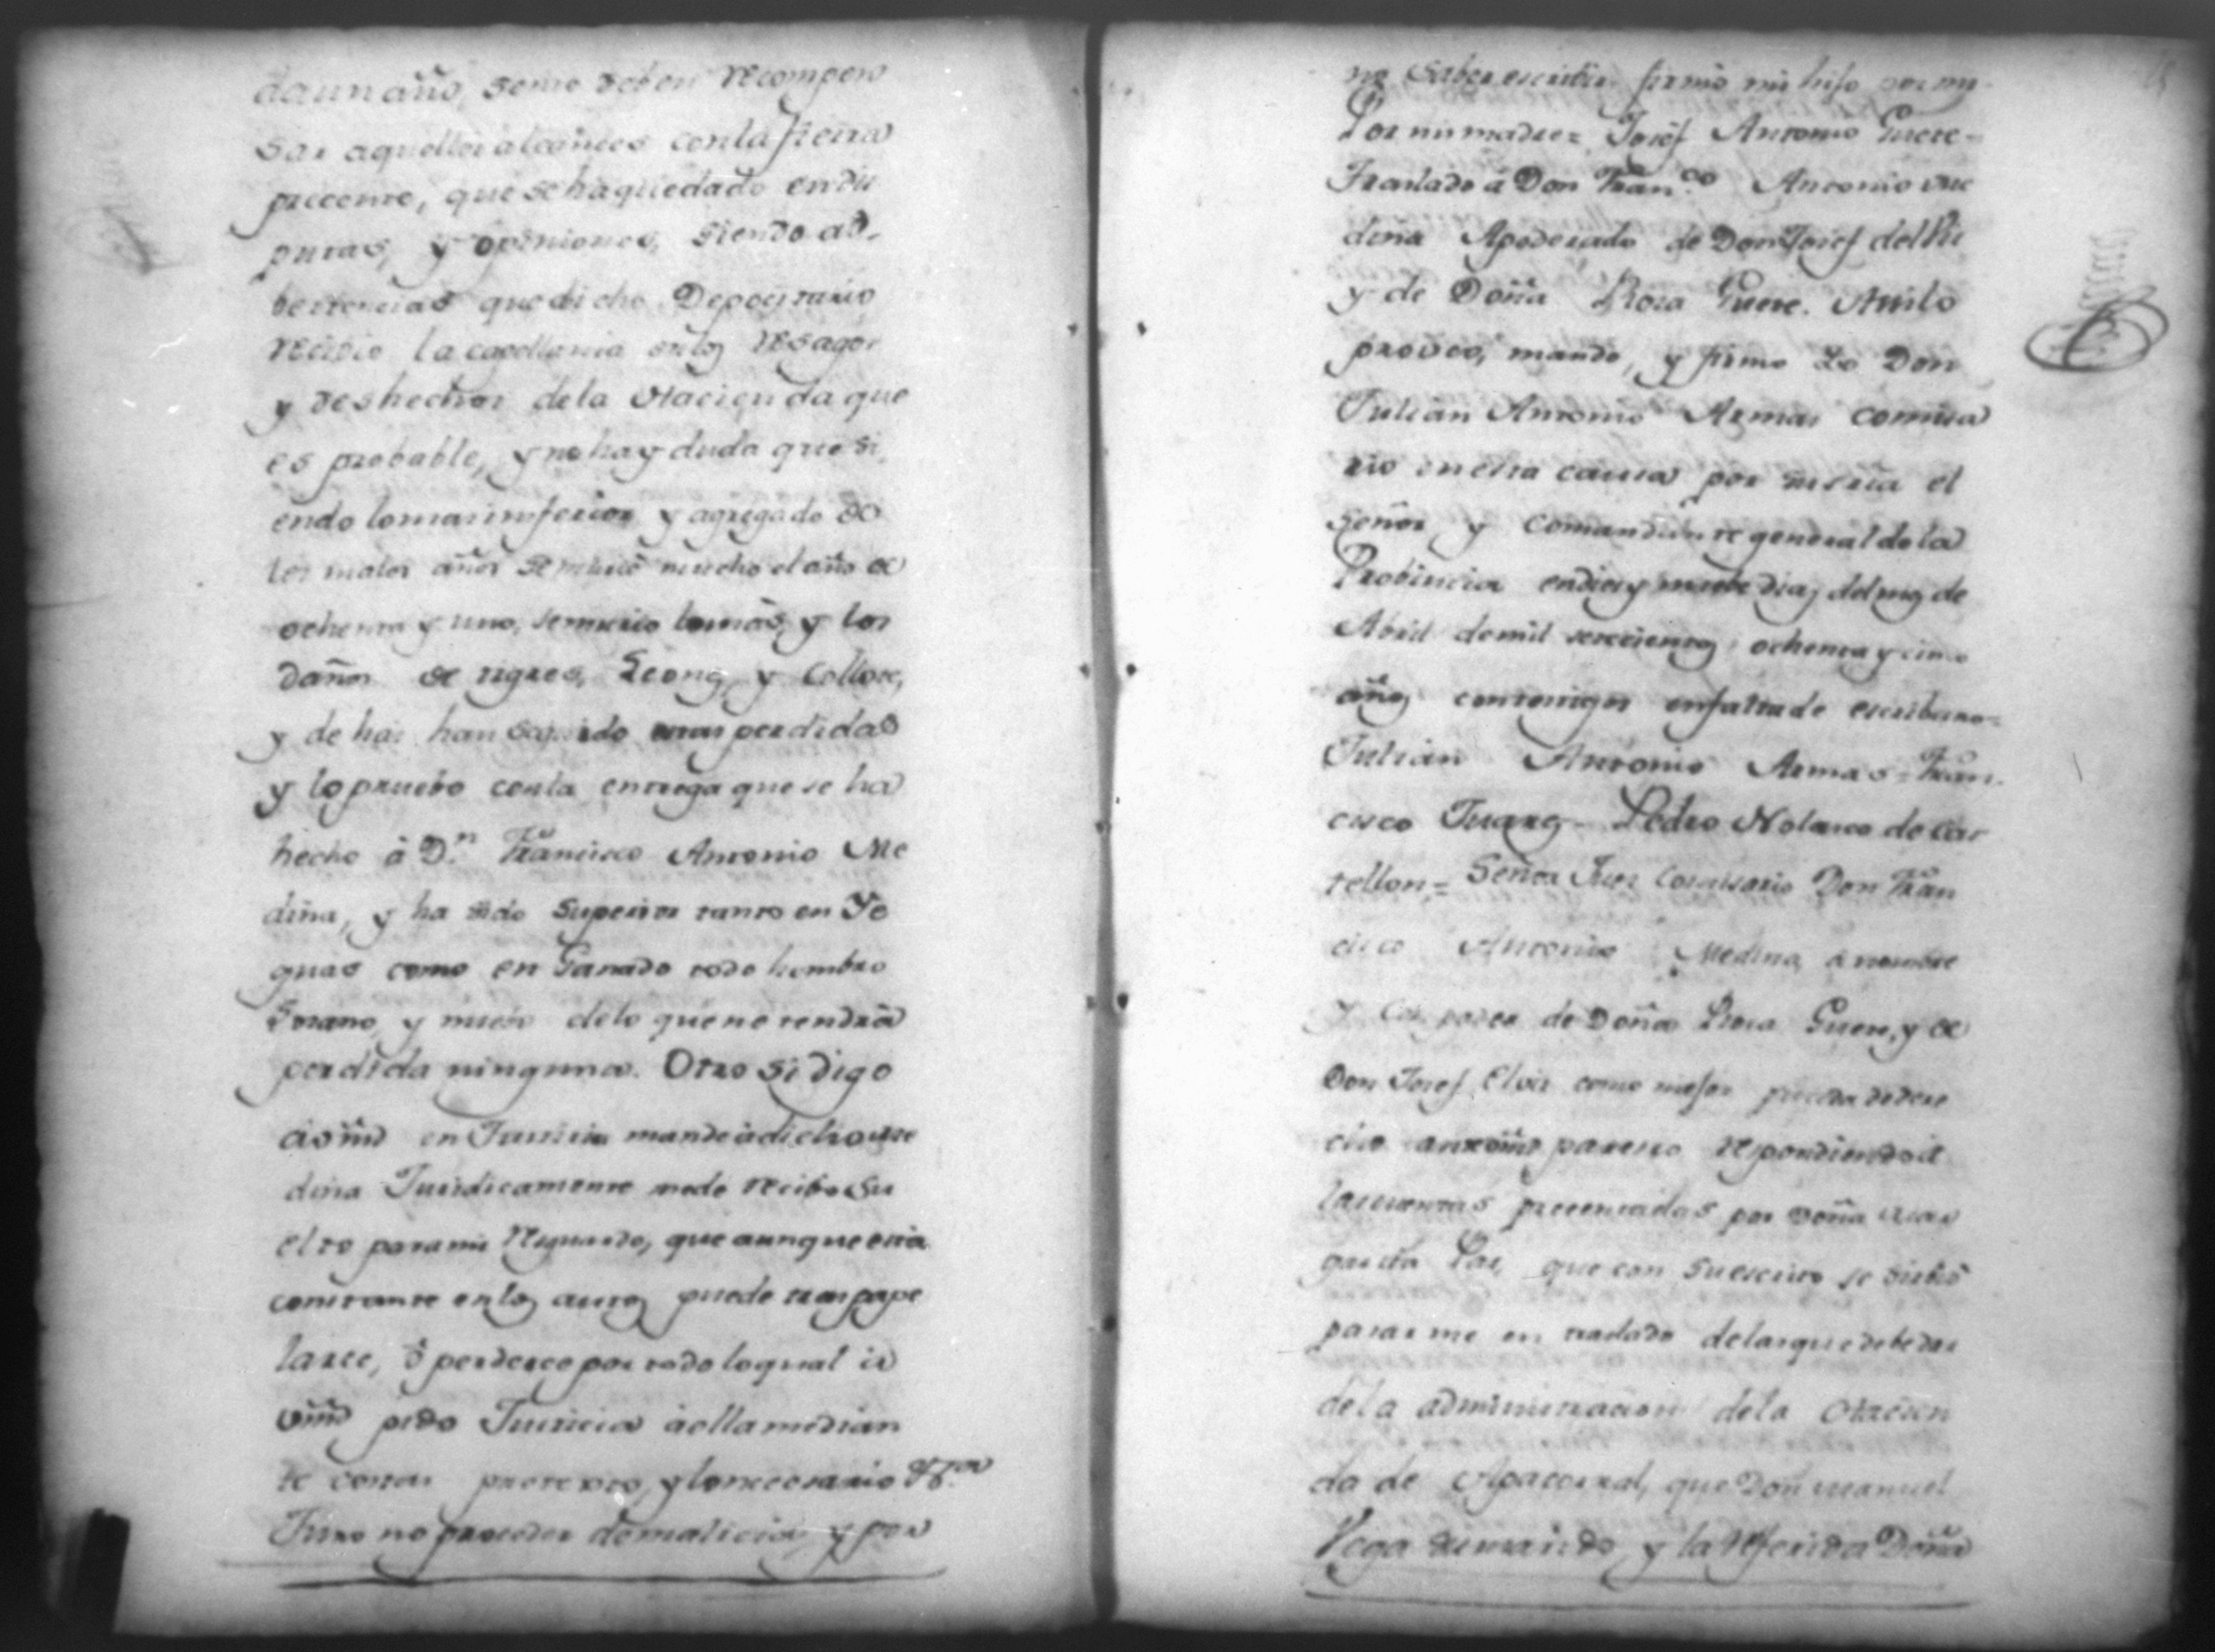 da un año, seme deben recompen
sar aquellos alcances con la fierra
precente, que se ha quedado en dis
putas, y opiniones, siendo ad-
bertencias que dicho Depocitario
recivio la capellania en los resagos
y deshechos de la Hacienda que
es probable, y no hay duda que si
endo lo mas imferior y agregado de
los malos años se murio mucho el año de
ochenta y uno, se murio lo mas, y los
daños de tigres, Leones, y Collote,
y de hai han seguido mas perdidas
y lo pruebo con la entrega que se ha
hecho à D.n Francisco Antonio Me
dina, y ha sido Superior tanto en Ye
guas como en Ganado todo hembro
y nuebo de lo que no tendrá
perdida ninguna. Otro si digo
à vmd en Justicia mande à dicho Me
dina Juridicamente me de recibo su
elto para mi resguardo, que aunque està
constante en los autos puede traspape
larce, ò perderce por todo lo qual à
vmd pido Justicia à ella median
te costas protexto, y lo necesario &ra
Juro no proceder de malicia, y por
no saber escribir firmò mi hijo por mi
Por mi madre = Josef Antonio Guere =
Traslado à Don Franco Antonio Me
dina Apoderado de Don Josef del Vir
y de Doña Rosa Guere. Assi lo
proveo, mando, y firmo Yo Don
Julian Antonio Armas Comisa
rio en esta causa por el
Señor y Comandante general de la
Probincia en diez y nuebe dias del mes de
Abril de mil setecientos ochenta y cinco
años con testigos en falta de escribano =
Julian Antonio Armas = Fran
cisco Juares = Pedro Nolasco de Cas
tellon = Señor Jues Comisario Don Fran
cisco Antonio Medina, à nombre
y con poder de Doña Rosa Guere, y de
Don Josef Elvir como mejor proceda de dere
cho ante vmd paresco respondiendo à
las cuentas precentadas por Doña Mar
garita Paz, que con su escrito se sirbiò
pasarme en traslado de las que debe dar
de la administracion de la Hacien
da de Apacorral, que Don Manuel
Vega su marido, y la referida Doña